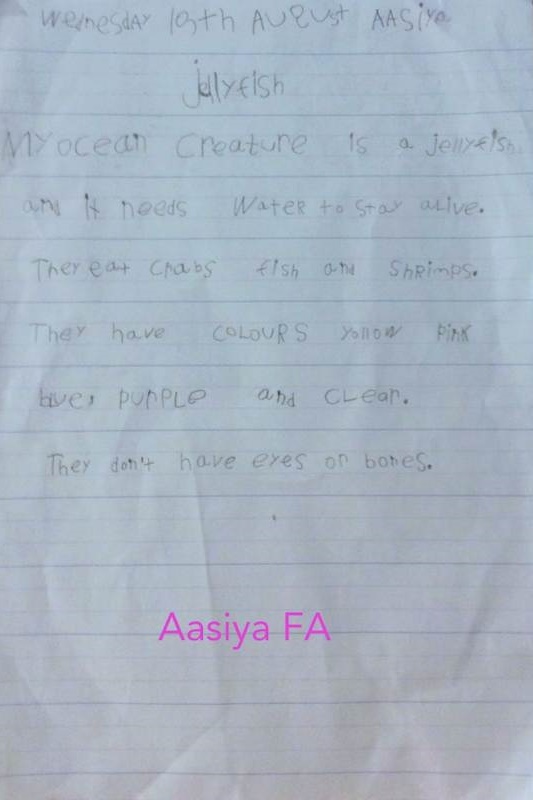 Wednesday 19th AUgUst AASiya
jellyfish
My ocean creature is a jellyfish
and it needs WateR to stay alive.
They eat crabs fish and ShRimps.
They have COLOURS yollow Pink
blue, PURPLe and CLear.
They don't have eyes or bones.
Aasiya FA